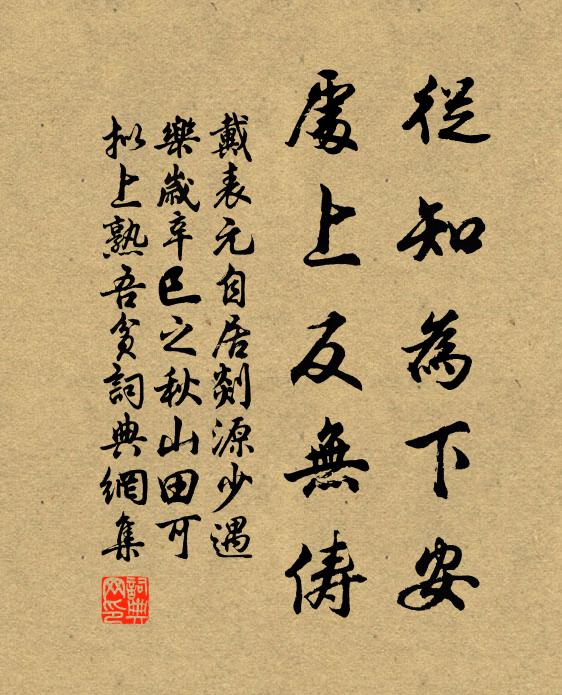 從知為下安
處上反無儔
戴表元自居剡源少遇
樂歲辛巳之秋山田可
擬上熟吾貧詞典網集
詞典网印